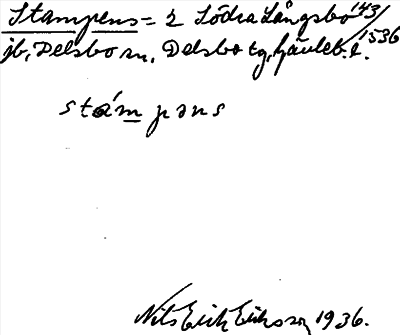 Stampens = 2 Södra Långsbo 143/1536
jb, Delsbo sn, Delsbo tg, Gävleb. l.
stámpəns
Nils Erik Erikson 1936.